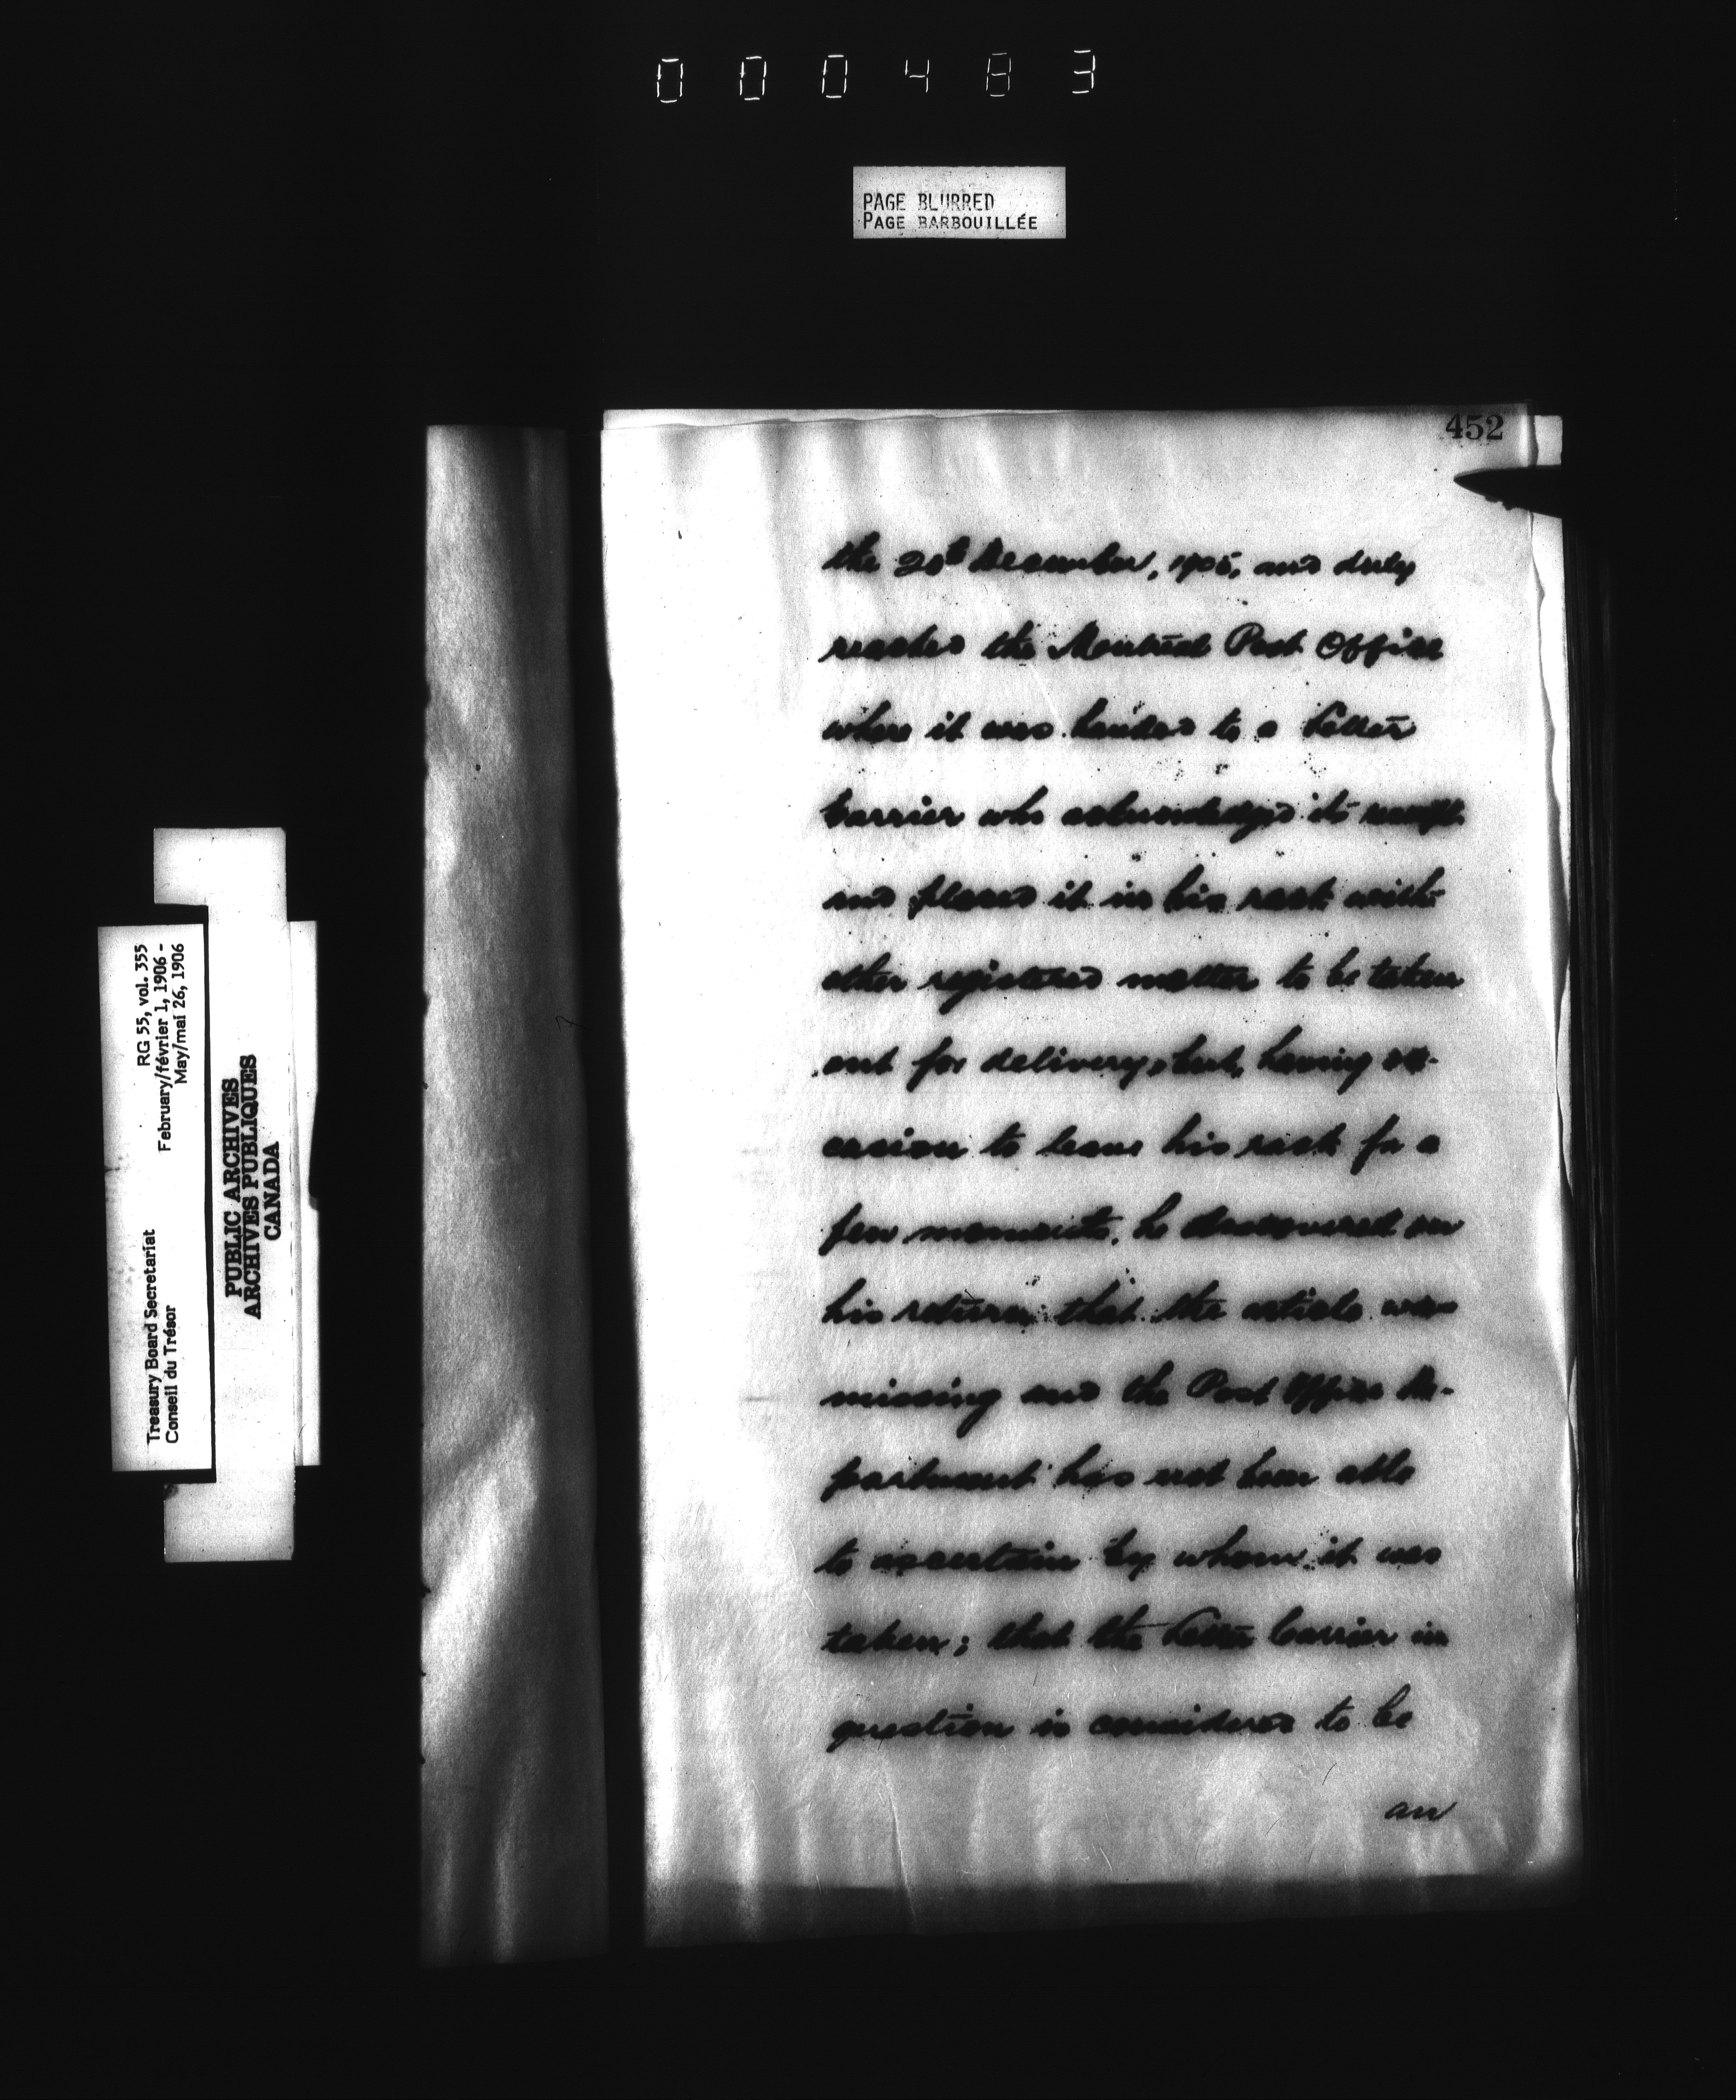 000483
PAGE BLURRED
PAGE BARBOUILLÉE
452
the 20th December, 1905, and duly
reached the Montreal Post Office
where it was handed to a Letter
Carrier who acknowledged its receipt
and placed it in his rack with
other registered matter to be taken
out for delivery, but, having oc-
casion to leave his rack for a
few moments, he discovered on
his return that the article was
missing and the Post Office De-
partment has not been able
to ascertain by whom it was
taken; that the Letter Carrier in
question is considered to be
an
RG 55, vol. 355
February/février 1, 1906 -
May/mai 26, 1906
Treasury Board Secretariat
Conseil du Trésor
PUBLIC ARCHIVES
ARCHIVES PUBLIQUES
CANADA